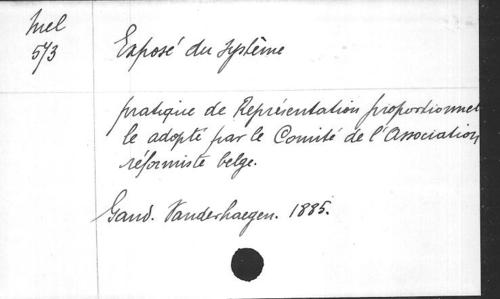 Mel
573
Exposé du système
pratique de Représentation proportionnel
le adopté par le Comité de l'Association
réformiste belge.
Gand. Vanderhaegen. 1885.